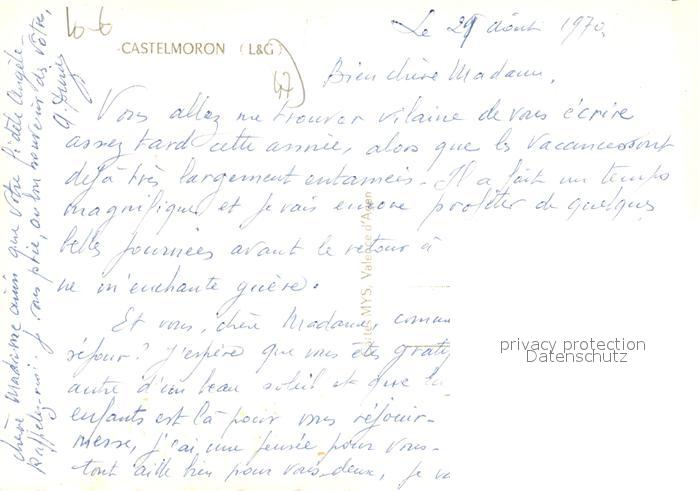 10-6
CASTELMORON (L&G)
47
Le 29 août 1970,
Bien chère Madame,
Vous allez me trouver vilaine de vous écrire
assez tard cette année, alors que les vacances sont
déjà très largement entamées. Il a fait un temps
magnifique et je vais encore profiter de quelques
belles journées avant le retour à
ne m'enchante guère.
Et vous, chère Madame, comme
séjour? J'espère que vous êtes graty
autre d'un beau soleil et que
enfants est là pour vous réjouir.
messe, j'ai une pensée pour vous.
tout aille bien pour vous deux, je
chère Madame ainsi que votre fidèle Angèle.
Rappelez-moi. je vous prie, au bon souvenir des vôtres,
Cartes MYS. Valence d'Agen
privacy protection
Datenschutz